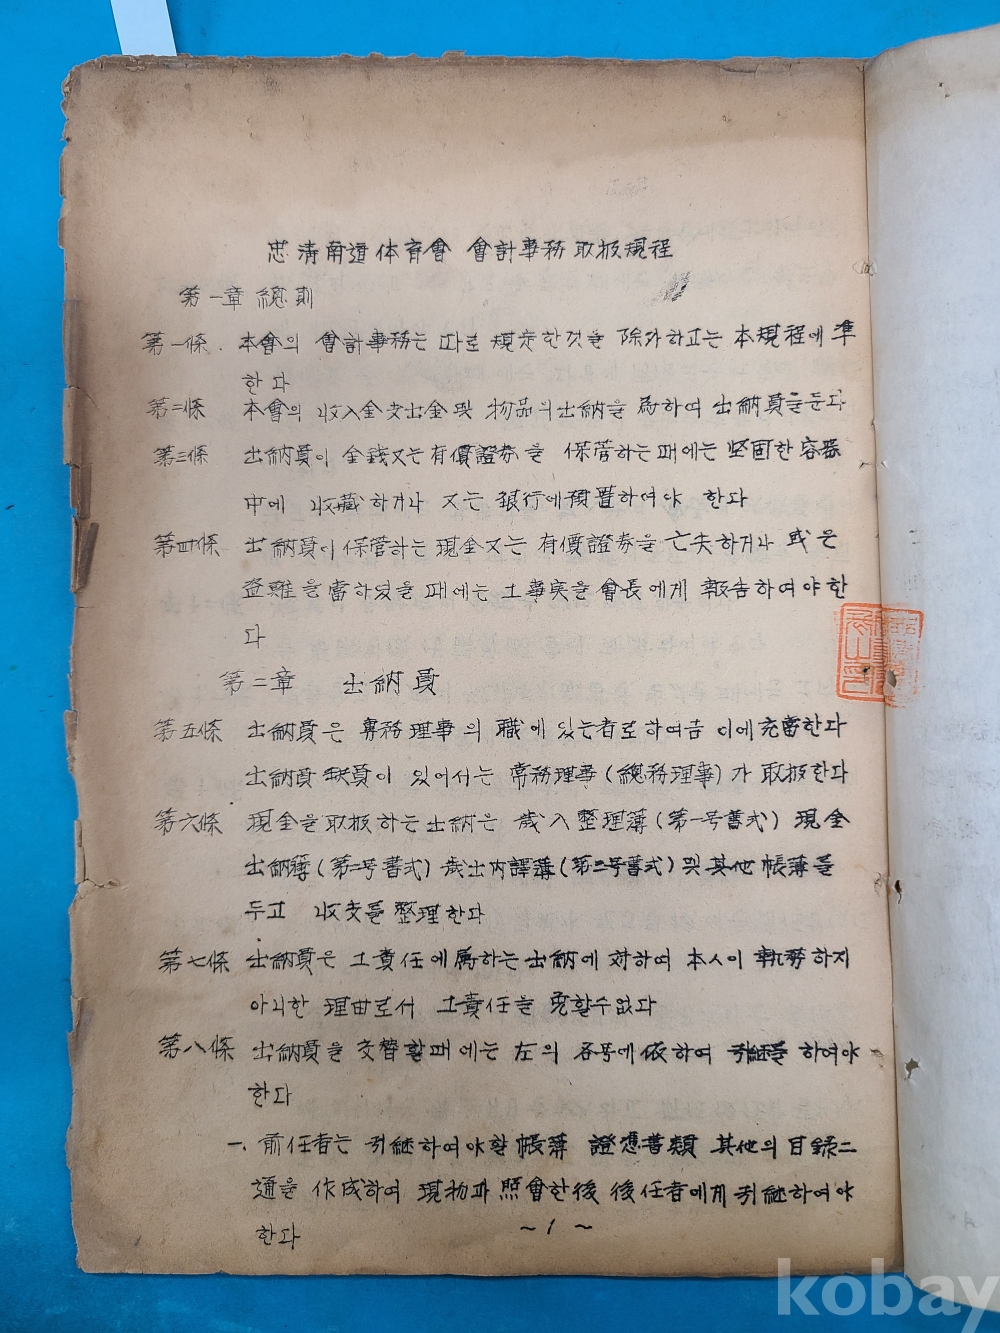 忠淸南道体育會 會計事務取扱規程
第一章 總則
第一條 本會의 會計事務는 따로 規定한것을 除外하고는 本規程에 準
한다
第二條 本會의 收入金支出金 및 物品의 出納을 爲하여 出納員을둔다
第三條 出納員이 金錢又는 有價證券을 保管하는때에는 堅固한 容器
中에 收藏하거나 又는 銀行에預置하여야 한다
第四條 出納員이 保管하는 現金又는 有價證券을 亡失하거나 或은
盜難을當하였을때에는 그事実을 會長에게 報告하여야한
다
第二章 出納員
第五條 出納員은 專務理事의 職에 있는者로하여금 이에充當한다
出納員 缺員이 있어서는 常務理事(總務理事)가 取扱한다
第六條 現金을取扱하는出納은 歲入整理簿(第一号書式) 現金
出納簿(第二号書式) 歲出內譯簿(第三号書式)및其他帳簿를
두고 收支를整理한다
第七條 出納員은 그責任에屬하는出納에 対하여 本人이 執務하지
아니한 理由로서 그責任을 免할수없다
第八條 出納員을交替할때에는左의 各号에依하여 引継를 하여야
한다
一. 前任者는 引継하여야할帳簿 證憑書類 其他의目録二
通을 作成하여 現物과照會한後 後任者에게引継하여야
한다
~1~
kobay